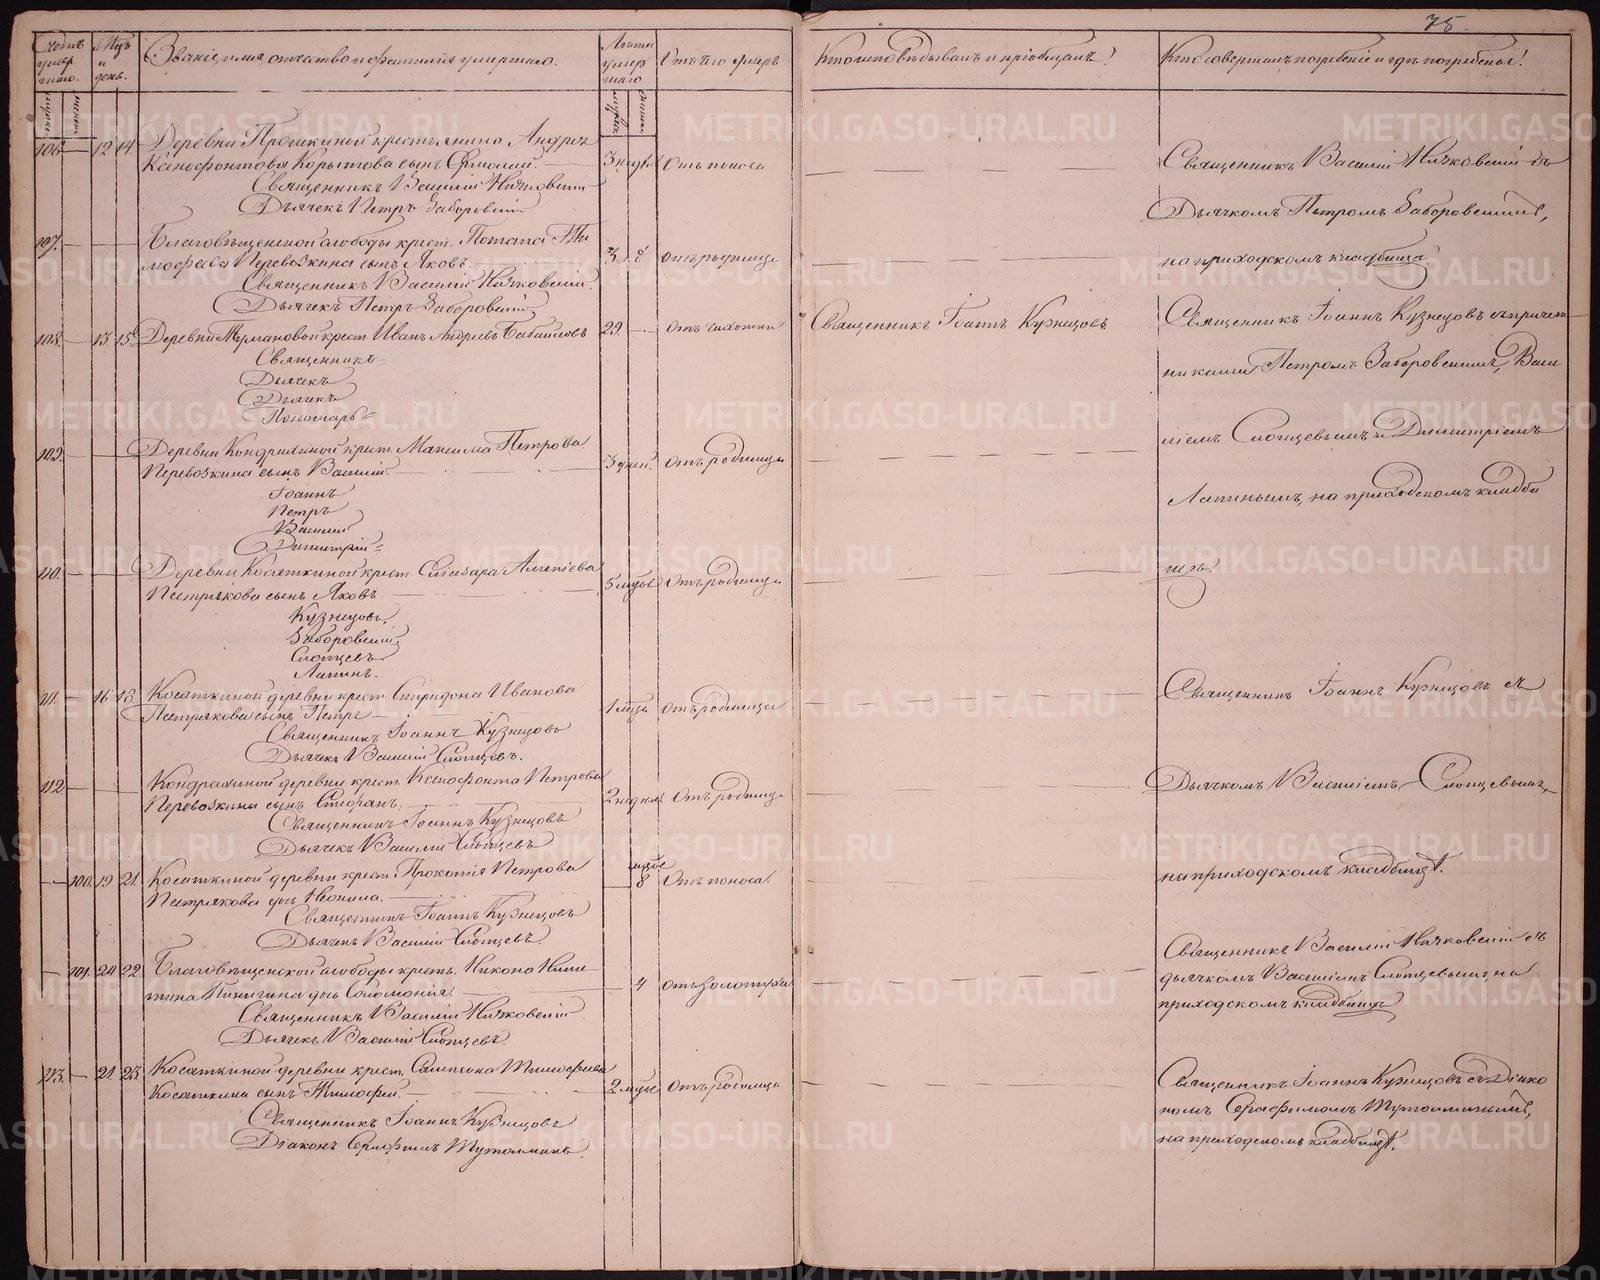 75.
Счетъ умер шаго.
Мцъ и день.
Званіе, имя, отчество и фамилія умершаго.
Лѣта умер шаго
Отъ чего умеръ
Кто исповѣдывалъ и пріобщалъ?
Кто совершалъ погребеніе и гдѣ погребены?
106. — 12 14 Деревни крестьянина Андрея
Ксенофонтова Корытова сынъ Ермолай. — 3 недѣл. Отъ поноса
Священникъ Василій
Дьячекъ Петръ Заборовскій
Священникъ Василій съ
Дьячкомъ Петромъ Заборовскимъ,
на приходскомъ кладбищѣ
107. — Благовѣщенской слободы крест. Потапа Ти
мофеева Перевозкина сынъ Яковъ. 3 Отъ родимца
Священникъ Василій
Дьячекъ Петръ Заборовскій
108. — 13 15 Деревни Тумановой крест. Иванъ Андреевъ 29. — Отъ чахотки
Священникъ Іоаннъ Кузнецовъ
Священникъ
Дьячекъ
Дьячекъ
Пономарь
Священникъ Іоаннъ Кузнецовъ съ причет
никами Петромъ Заборовскимъ, Васи
ліемъ Слопцевымъ и Димитріемъ
Лапинымъ, на приходскомъ кладби
щѣ.
109. — Деревни Кондрахиной крест. Максима Петрова
Перевозкина сынъ Василій. — 3 дней. Отъ родимца
Іоаннъ
Петръ
Василій
Димитрій
110. — Деревни Косаткиной крест.
Пастрякова сынъ Яковъ. 5 мцовъ Отъ родимца
Кузнецовъ.
Заборовскій
Слопцевъ
Лапинъ.
111. — 16 18 Косаткиной деревни крест. Спиридона Иванова
Пастрякова сынъ Петръ — 1 мцъ Отъ родимца
Священникъ Іоаннъ Кузнецовъ
Дьячекъ Василій Слопцевъ.
Священникъ Іоаннъ Кузнецовъ съ
Дьячкомъ Василіемъ Слопцевымъ,
на приходскомъ кладбищѣ.
112 — Кондрахиной деревни крест. Ксенофонта Петрова
Перевозкина сынъ Стефанъ. 2 недѣли Отъ родимца
Священникъ Іоаннъ Кузнецовъ
Дьячекъ Василій Слопцевъ
— 100. 19 21. Косаткиной деревни крест. Прокопія Петрова
Пастрякова дочь Неонила. — мцовъ 8 Отъ поноса.
Священникъ Іоаннъ Кузнецовъ
Дьячекъ Василій Слопцевъ.
— 101. 20 22. Благовѣщенской слободы крест. Никона Ники
тина Пинигина дочь Соломонія. — 4 Отъ золотухи
Священникъ Василій
Дьячекъ Василій Слопцевъ.
Священникъ Василій съ
дьячкомъ Василіемъ Слопцевымъ, на
приходскомъ кладбищѣ
113. — 21. 23. Косаткиной деревни крест. Тимофеева
Косаткина сынъ Тимофей. — 2 мцовъ Отъ родимца
Священникъ Іоаннъ Кузнецовъ
Діаконъ Серафимъ Тутолминъ.
Священникъ Іоаннъ Кузнецовъ съ Діако
номъ Серафимомъ Тутолминымъ,
на приходскомъ кладбищѣ.
METRIKI.GASO-URAL.RU